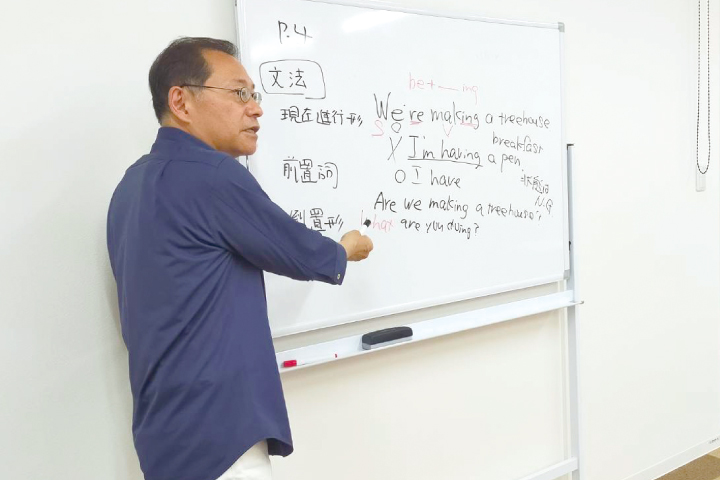 P.4
文法
be + ― ing
現在進行形 We're making a treehouse
S V
breakfast
X I'm having a pen
前置詞 O I have
状態動詞 N.G
Are we making a treehouse?
倒置形 What are you doing?